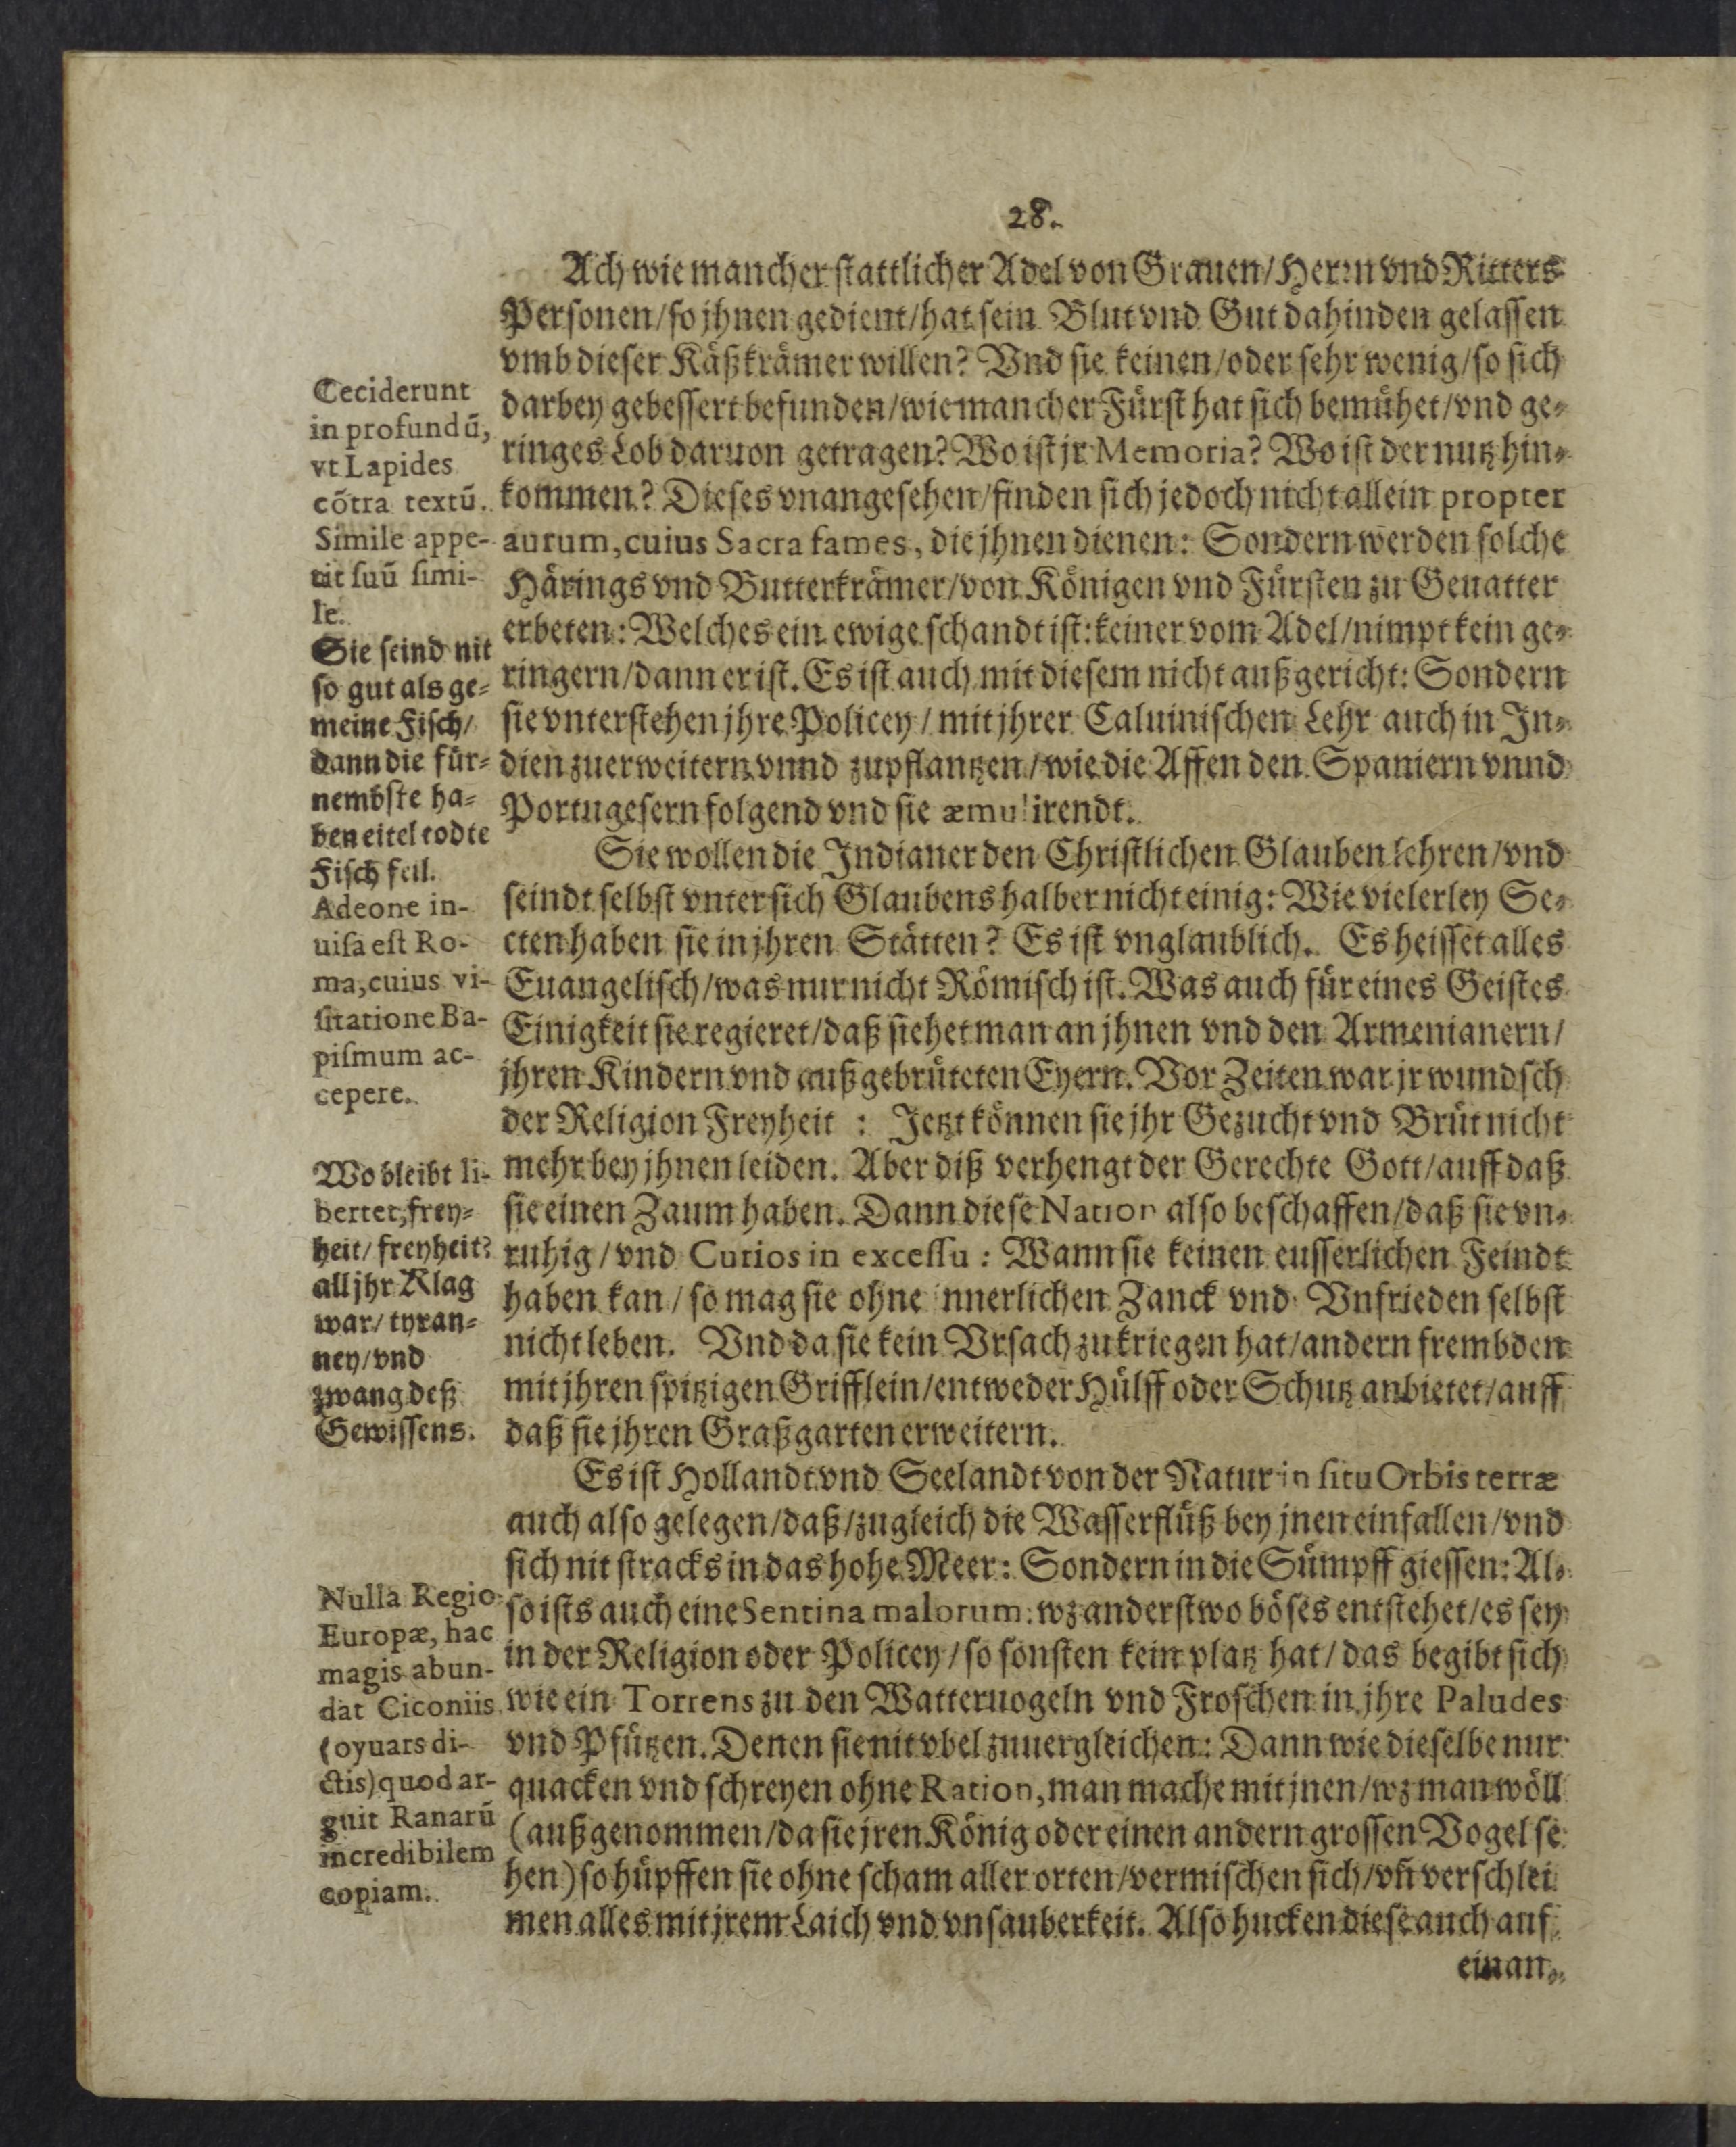 28.
Ach wie mancher stattlicher Adel von Grauen/Herrn vnd Ritters
Personen/so jhnen gedient/hat sein Blut vnd Gut dahinden gelassen
vmb dieser Käßkrämer willen? Vnd sie keinen/oder sehr wenig/so sich
darbey gebessert befunden/wie mancher Fürst hat sich bemühet/vnd ge-
ringes Lob daruon getragen? Wo ist jr Memoria? Wo ist der nutz hin-
kommen? Dieses vnangesehen/finden sich jedoch nicht allein propter
aurum, cuius Sacra fames, die jhnen dienen: Sondern werden solche
Härings vnd Butterkrämer/von Königen vnd Fürsten zu Geuatter
erbeten: Welches ein ewige schandt ist: keiner vom Adel/nimpt kein ge-
ringern/dann er ist. Es ist auch mit diesem nicht außgericht: Sondern
sie vnterstehen jhre Policey/mit jhrer Caluinischen Lehr auch in In-
dien zuerweitern vnnd zupflantzen/wie die Affen den Spaniern vnnd
Portugesern folgend vnd sie æmulirendt.
Sie wollen die Indianer den Christlichen Glauben lehren/vnd
seindt selbst vnter sich Glaubens halber nicht einig: Wie vielerley Se-
cten haben sie in jhren Stätten? Es ist vnglaublich. Es heisset alles
Euangelisch/was nur nicht Römisch ist. Was auch für eines Geistes
Einigkeit sie regieret/daß siehet man an jhnen vnd den Armenianern/
jhren Kindern vnd außgebrüteten Eyern. Vor Zeiten war jr wundsch
der Religion Freyheit : Jetzt können sie jhr Gezucht vnd Brüt nicht
mehr bey jhnen leiden. Aber diß verhengt der Gerechte Gott/auff daß
sie einen Zaum haben. Dann diese Nation also beschaffen/daß sie vn-
ruhig/vnd Curios in excessu: Wann sie keinen eusserlichen Feindt
haben kan/so mag sie ohne innerlichen Zanck vnd Vnfrieden selbst
nicht leben. Vnd da sie kein Vrsach zu kriegen hat/andern frembden
mit jhren spitzigen Grifflein/entweder Hülff oder Schutz anbietet/auff
daß sie jhren Graßgarten erweitern.
Es ist Hollandt vnd Seelandt von der Natur in situ Orbis terræ
auch also gelegen/daß/zugleich die Wasserflüß bey jnen einfallen/vnd
sich nit stracks in das hohe Meer: Sondern in die Sümpff giessen: Al-
so ists auch eine Sentina malorum: wz anderstwo böses entstehet/es sey
in der Religion oder Policey/so sonsten kein platz hat/das begibt sich
wie ein Torrens zu den Watteruogeln vnd Froschen in jhre Paludes
vnd Pfützen. Denen sie nit vbel zuuergleichen: Dann wie dieselbe nur
quacken vnd schreyen ohne Ration, man mache mit jnen/wz man wöll
(außgenommen/da sie jren König oder einen andern grossen Vogel se
hen) so hüpffen sie ohne scham aller orten/vermischen sich/vñ verschlei
men alles mit jrem Laich vnd vnsauberkeit. Also hucken diese auch auf
einan-
Ceciderunt
in profundū,
vt Lapides
cōtra textū.
Simile appe-
tit suū simi-
le.
Sie seind nit
so gut als ge-
meine Fisch/
dann die für-
nembste ha-
ben eitel todte
Fisch feil.
Adeone in-
uisa est Ro-
ma, cuius vi-
sitatione Ba-
pismum ac-
cepere.
Wo bleibt li-
bertet, frey-
heit/freyheit?
all jhr Klag
war/tyran-
ney/vnd
zwang deß
Gewissens.
Nulla Regio
Europæ, hac
magis abun-
dat Ciconiis
(oyuars di-
ctis) quod ar-
guit Ranarū
incredibilem
copiam.